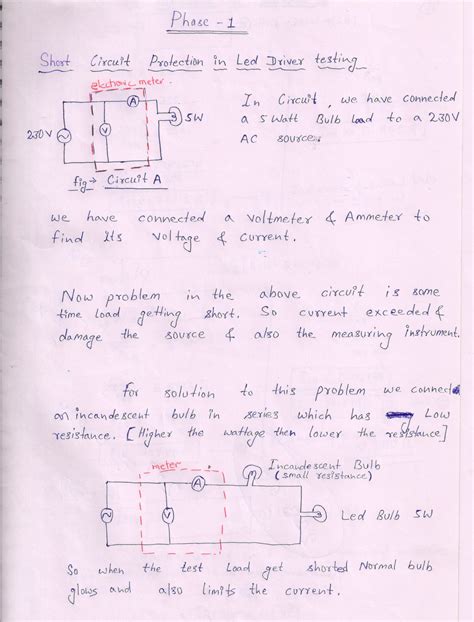 Phase - 1
Short Circuit Protection in Led Driver testing
electronic meter.
A
230V
V
5W
In Circuit, we have connected
a 5 Watt Bulb Load to a 230V
AC source.
fig → Circuit A
we have connected a voltmeter & Ammeter to
find its voltage & current.
Now problem in the above circuit is some
time load getting short. So current exceeded &
damage the source & also the measuring instrument.
For solution to this problem we connect
an incandescent bulb in series which has Low
resistance. [Higher the wattage then lower the resistance]
meter
A
V
Incandescent Bulb
(small resistance)
Led Bulb 5W
So when the test Load get shorted Normal bulb
glows and also limits the current.